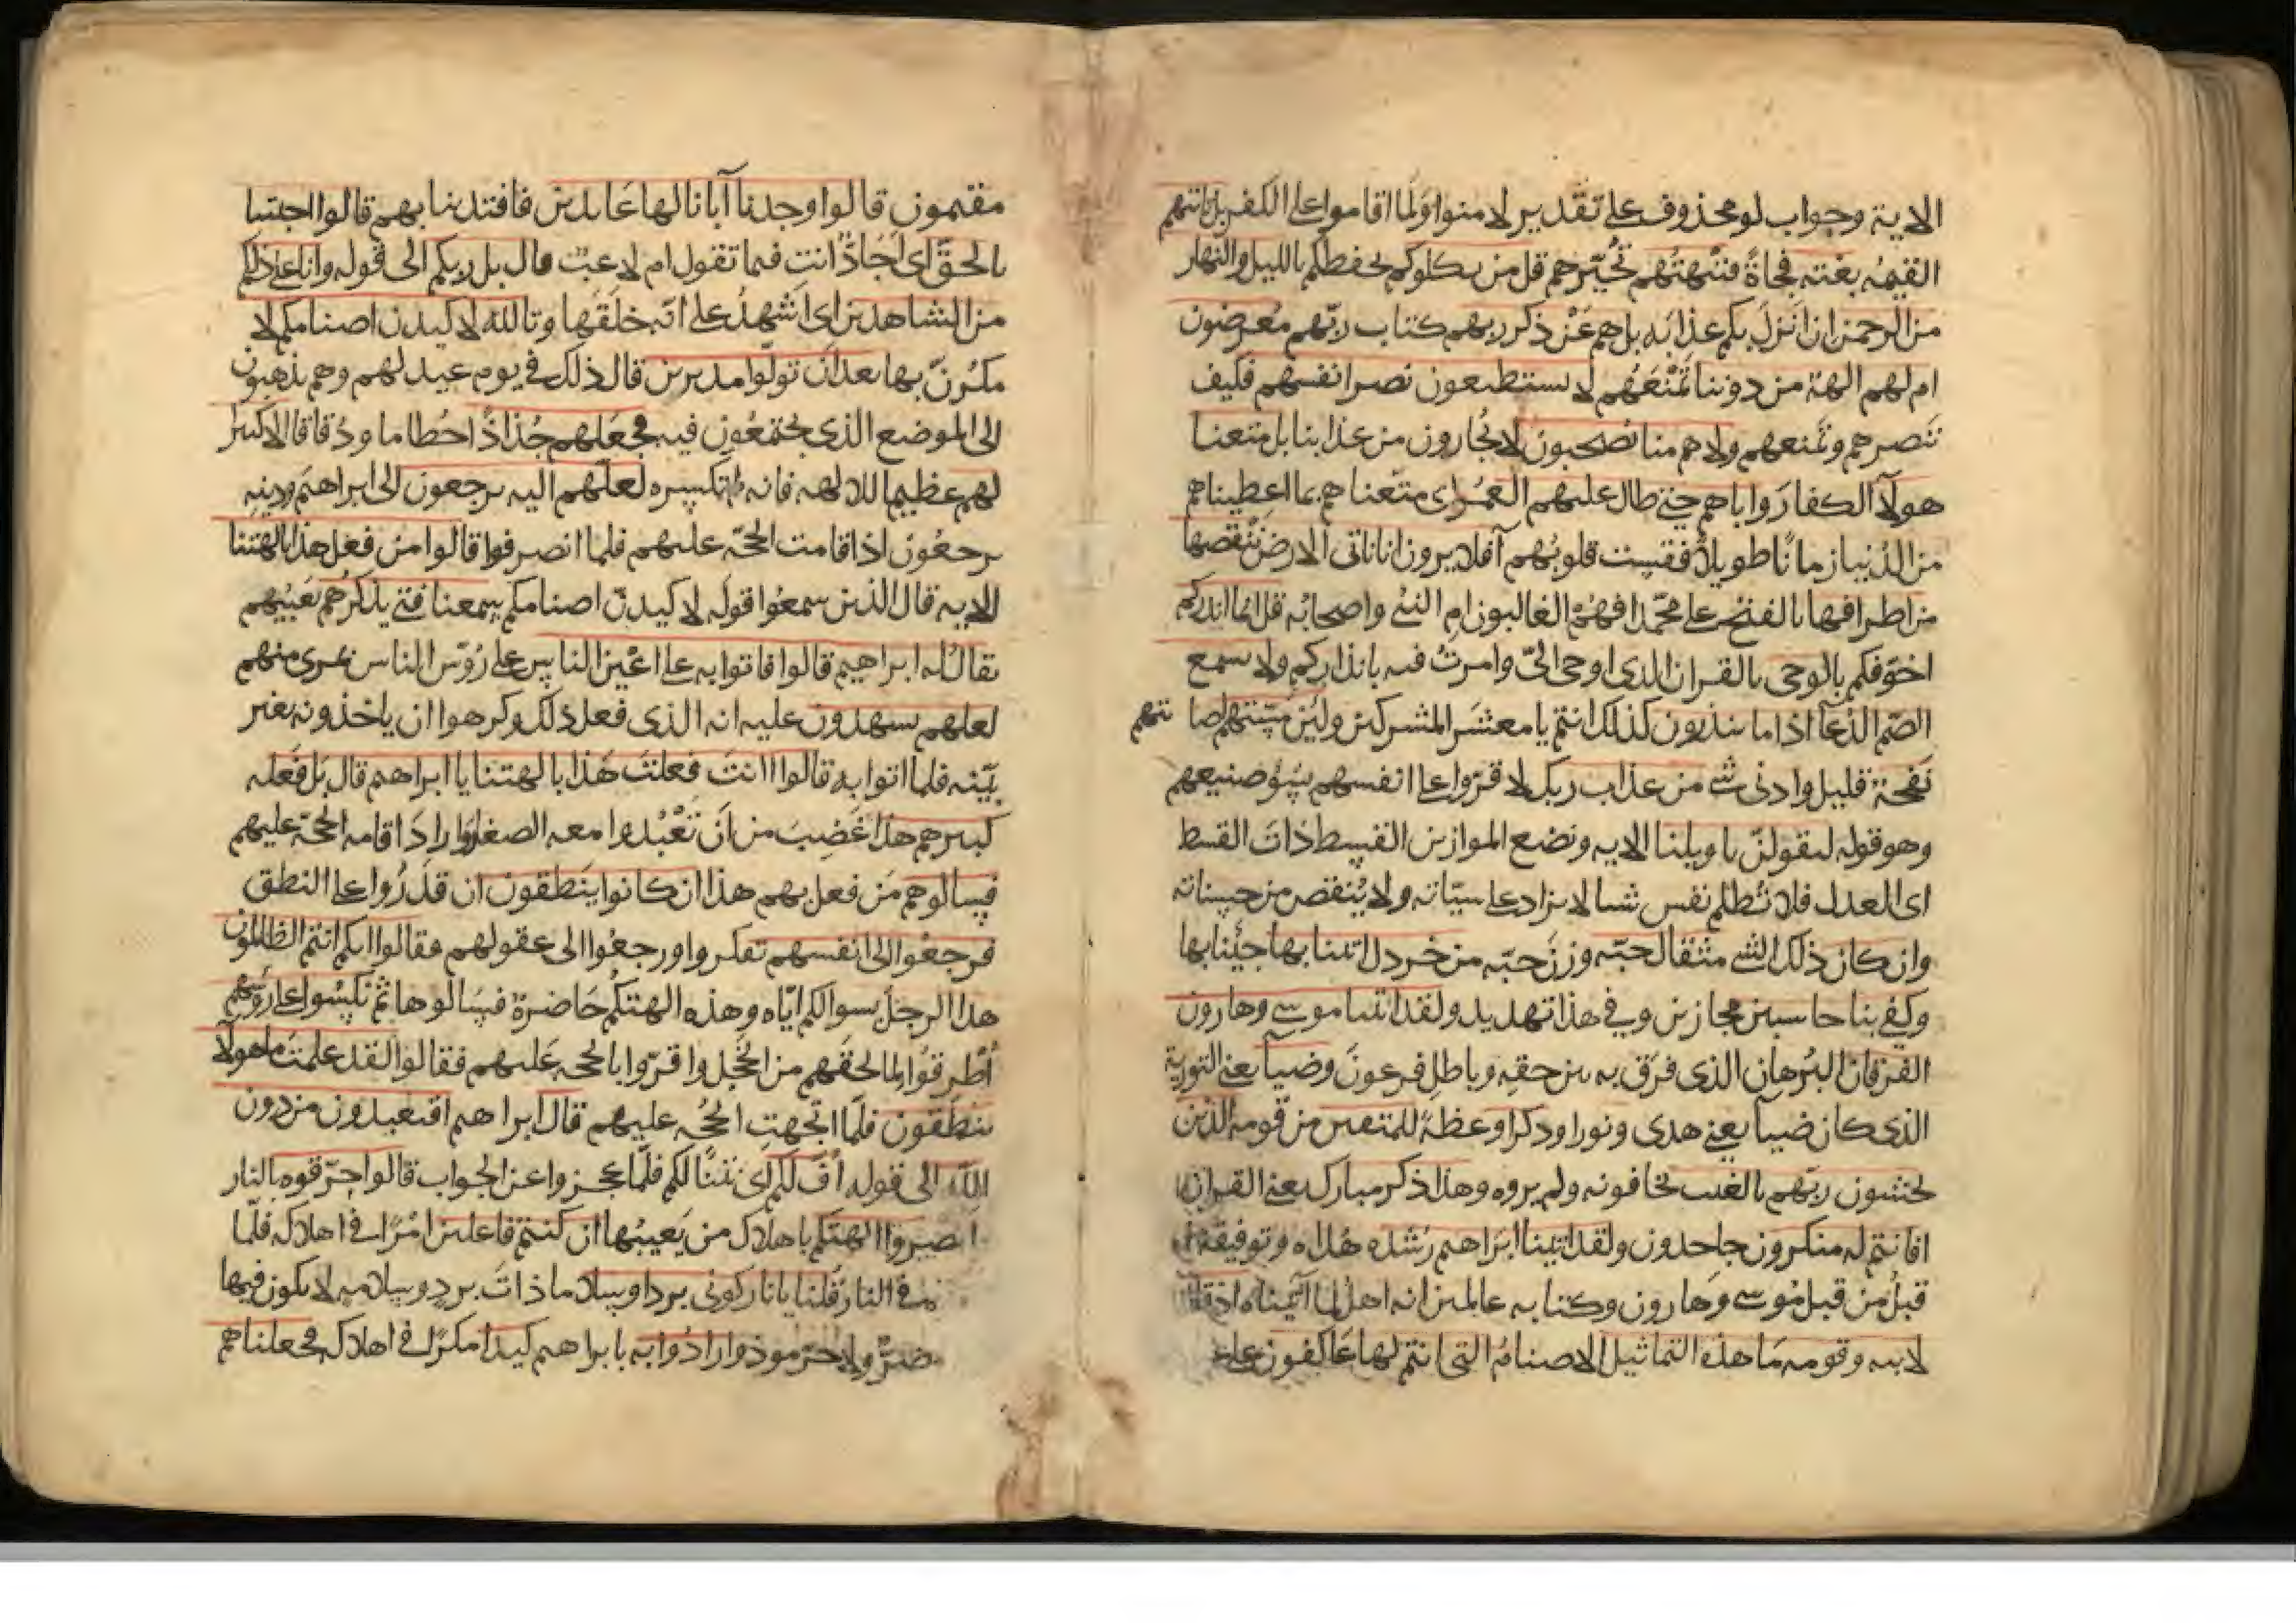 الاية وجواب لو محذوف على تقدير لامنوا ولما اقاموا على الكفر بل تاتيهم
القيمه بغتة فجاة فتبهتهم تحيرهم قل من يكلوكم يحفظكم بالليل والنهار
من الرحمن ان انزل بكم عذابه بل هم عن ذكر ربهم كتاب ربهم معرضون
ام لهم الهة من دوننا تمنعهم لا يستطيعون نصر انفسهم فكيف
تنصرهم وتمنعهم ولا هم منا يصحبون لا يجارون من عذابنا بل متعنا
هولآ الكفار واباهم حتى طال عليهم العمر اى متعناهم بما اعطيناهم
من الدنيا زمانا طويلا فقست قلوبهم افلا يرون انا ناتى الارض ننقصها
من اطرافها بالفتح على محمد افهم الغالبون ام النبى واصحابه قل انما انذركم
اخوفكم بالوحى بالقران الذى اوحى الىّ وامرت فيه بانذاركم ولا يسمع
الصم الدعآ اذا ما ينذرون كذلك انتم يا معشر المشركين ولين مستهم اصابتهم
نفحة قليل وادنى شى من عذاب ربك لاقروا على انفسهم بسؤ صنيعهم
وهو قوله ليقولن يا ويلنا الايه ونضع الموازين القسط ذات القسط
اى العدل فلا تظلم نفس شيا لا يزاد على سيّاته ولا ينقص من حسناته
وان كان ذلك الشى مثقال حبه وزن حبه من خردل اتينا بها جينا بها
وكفى بنا حاسبين مجازين وفى هذا تهديد ولقد اتينا موسى وهارون
الفرقان البرهان الذى فرق به بين حقه وباطل فرعون وضيآ يعنى التورية
الذى كان ضيآ يعنى هدى ونورا وذكرا وعظة للمتقين من قومه الذين
يخشون ربهم بالغيب يخافونه ولم يروه وهذا ذكر مبارك يعنى القران
افانتم له منكرون جاحدون ولقد اتينا ابراهيم رشده هداه وتوفيقه
قبل من قبل موسى وهارون وكنا به عالمين انه اهل لما اتيناه اذ قال
لابيه وقومه ما هذه التماثيل الاصنام التى انتم لها عاكفون على
مقيمون قالوا وجدنا آبانا لها عابدين فاقتدينا بهم قالوا اجيتنا
بالحق اى اجادّ انت فيما تقول ام لاعب قال بل ربكم الى قوله وانا على ذلكم
من الشاهدين اى اشهد على انه خلقها وتالله لاكيدن اصنامكم لا
مكرنّ بها بعد ان تولوا مدبرين قال ذلك فى يوم عيد لهم وهم يذهبون
الى الموضع الذى يجتمعون فيه فجعلهم جذاذا حطاما ودقاقا الا كبيرا
لهم عظيما للالهه فانه لم يكسره لعلهم اليه يرجعون الى ابراهيم ودينه
يرجعون اذا قامت الحجه عليهم فلما انصرفوا قالوا من فعل هذا بالهتنا
الايه قال الذين سمعوا قوله لاكيدن اصنامكم سمعنا فتى يذكرهم يعيبهم
يقال له ابراهيم قالوا فاتوا به على اعين الناس على رؤس الناس بمرى منهم
لعلهم يشهدون عليه انه الذى فعل ذلك وكرهوا ان ياخذونه بغير
بيّنه فلما اتوا به قالوا اانت فعلت هذا بالهتنا يا ابراهيم قال بل فعله
كبيرهم هذا غضب من ان تعبدوا معه الصغار واراد اقامه الحجة عليهم
فسالوهم من فعل بهم هذا ان كانوا ينطقون ان قدروا على النطق
فرجعوا الى انفسهم تفكروا ورجعوا الى عقولهم فقالوا انكم انتم الظالمون
هذا الرجل بسوالكم اياه وهذه الهتكم حاضرة فسالوها ثم نكسوا على روسهم
اطرقوا لما لحقهم من الخجل واقروا بالحجه عليهم فقالوا لقد علمت ما هولآ
ينطقون فلما اتجهت الحجه عليهم قال ابراهيم افتعبدون من دون
الله الى قوله اف لكم اى نتنا لكم فلما عجزوا عن الجواب قالوا حرقوه بالنار
انصروا الهتكم باهلاك من يعيبها ان كنتم فاعلين امرا فى اهلاكه فلما
فى النار قلنا يا نار كونى بردا وسلاما ذات برد وسلامه لا يكون فيها
ضر ولا حر موذ وارادوا به بابراهيم كيدا مكرا فى اهلاكه فجعلناهم